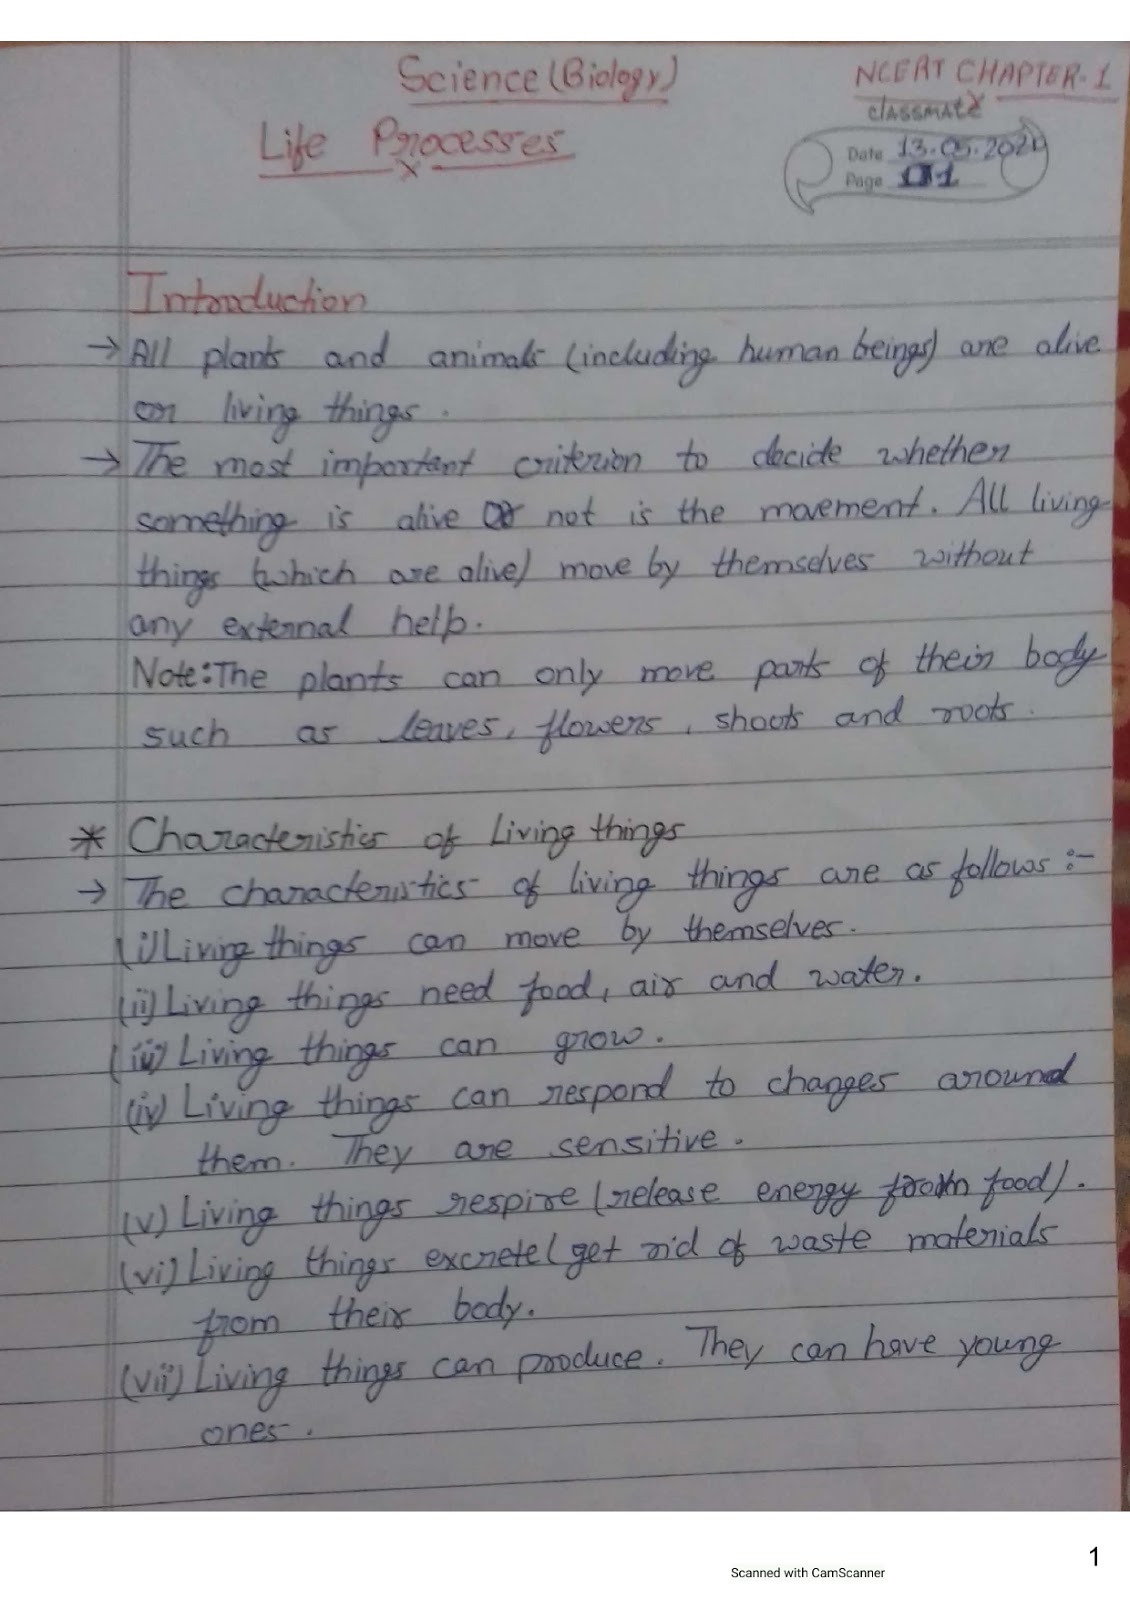 Science (Biology)
NCERT CHAPTER-1
classmate
Life Processes
Date 13.05.2021
Page 1
Introduction
→ All plants and animals (including human beings) are alive
or living things.
→ The most important criterion to decide whether
something is alive or not is the movement. All living
things (which are alive) move by themselves without
any external help.
Note: The plants can only move parts of their body
such as leaves, flowers, shoots and roots.
* Characteristics of Living things
→ The characteristics of living things are as follows :-
(i) Living things can move by themselves.
(ii) Living things need food, air and water.
(iii) Living things can grow.
(iv) Living things can respond to changes around
them. They are sensitive.
(v) Living things respire (release energy from food).
(vi) Living things excrete (get rid of waste materials
from their body.
(vii) Living things can produce. They can have young
ones.
1
Scanned with CamScanner